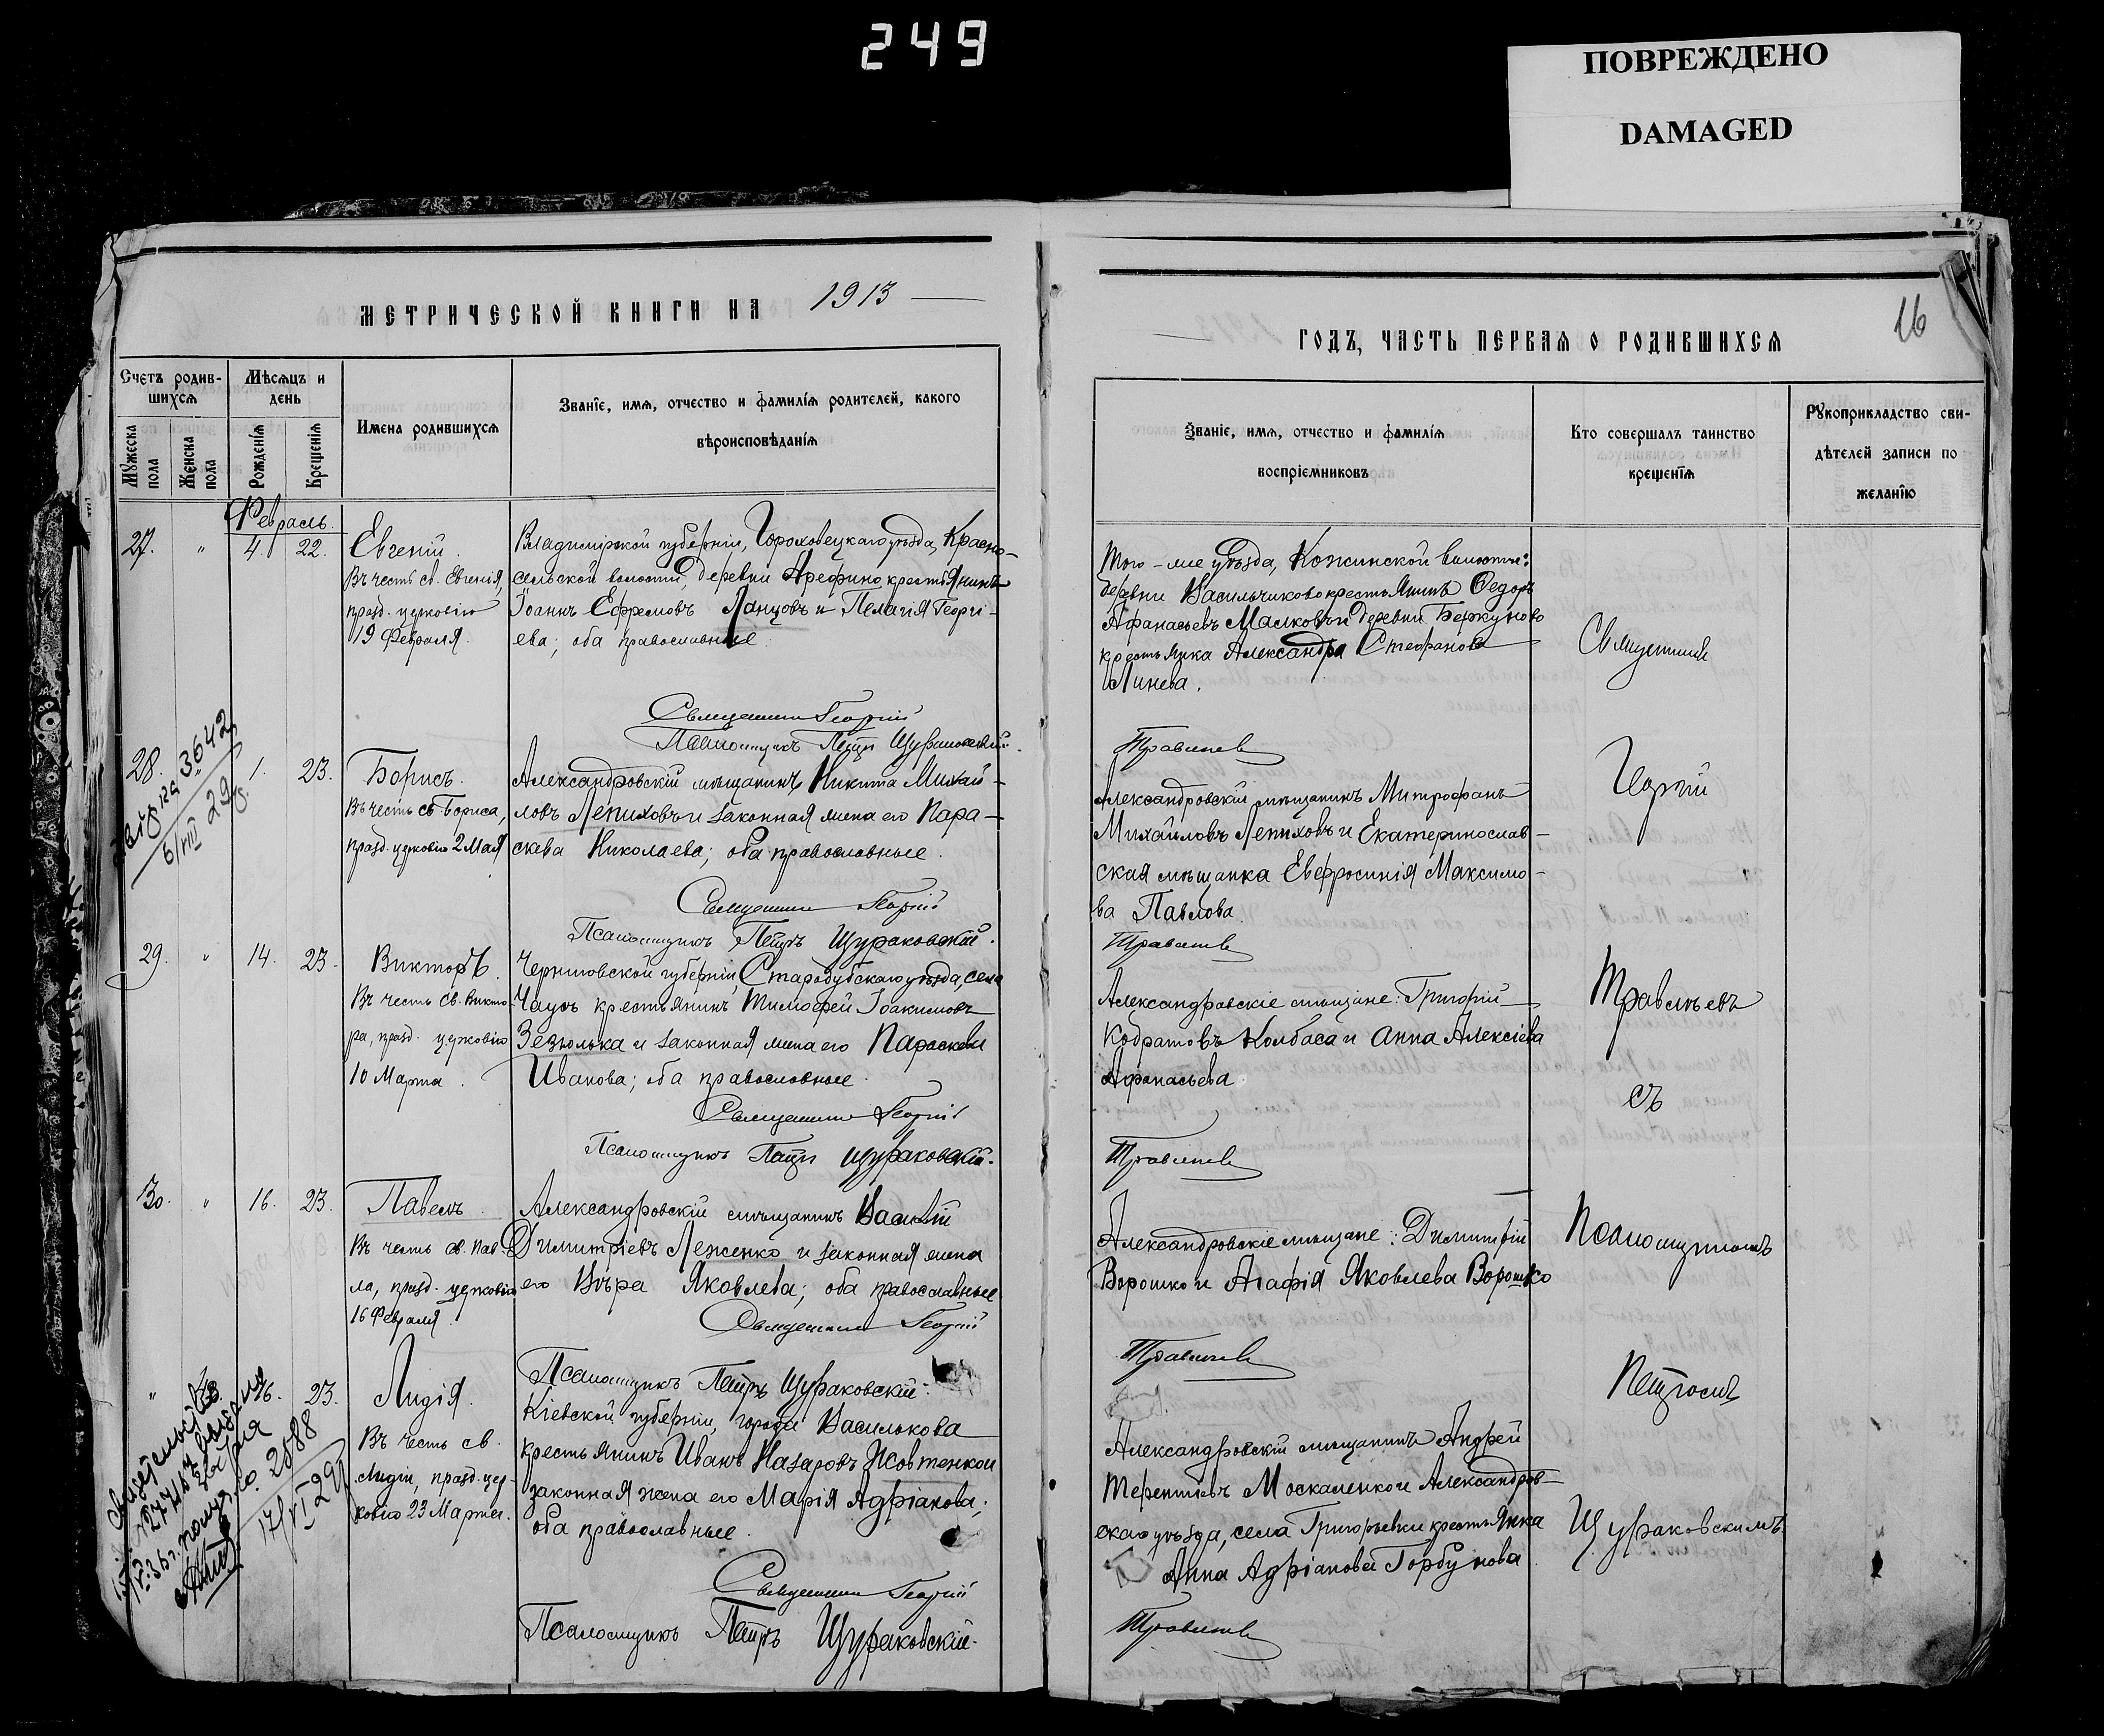 249
ПОВРЕЖДЕНО
DAMAGED
МЕТРИЧЕСКОЙ КНИГИ НА 1913
Счетъ родив-
шихся
Мѣсяцъ и
день
Имена родившихся
Званіе, имя, отчество и фамилія родителей, какого
вѣроисповѣданія
Мужеска
пола
Женска
пола
Рожденія
Крещенія
Февраль.
27. " 4. 22. Евгеній.
Въ честь св. Евгенія,
празд. церковію
19 Февраля.
Владимірской губерніи, Гороховецкаго уѣзда, Красно-
сельской волости, деревни Арефино крестьянинъ
Іоаннъ Ефремовъ Ланцовъ и Пелагія Георгі-
ева; оба православные.
Священникъ Георгій
Псаломщикъ Петръ Щураковскій.
28. 1. 23. Борисъ.
Въ честь св. Бориса,
празд. церковію 2 Мая
Александровскій мѣщанинъ Никита Михай-
ловъ Лепиховъ и законная жена его Пара-
скева Николаева; оба православные.
3642
6/VIII 29
Священникъ Георгій
Псаломщикъ Петръ Щураковскій.
29. " 14. 23. Викторъ.
Въ честь св. Викто-
ра, празд. церковію
10 Марта.
Черниговской губерніи, Стародубскаго уѣзда, села
Чаусъ крестьянинъ Тимофей Іоакимовъ
Зезюлька и законная жена его Параскева
Иванова; оба православные.
Священникъ Георгій
Псаломщикъ Петръ Щураковскій.
30. " 16. 23. Павелъ.
Въ честь св. Пав-
ла, празд. церковію
16 Февраля.
Александровскій мѣщанинъ Василій
Димитріевъ Леженко и законная жена
его Вѣра Яковлева; оба православные
Священникъ Георгій
Псаломщикъ Петръ Щураковскій.
" 16. 23. Лидія.
Въ честь св.
Лидіи, празд. цер-
ковію 23 Марта.
Кіевской губерніи, города Василькова
крестьянинъ Иванъ Назаровъ Жовтенко и
законная жена его Марія Адріанова;
оба православные.
2588
17/VI 29
Священникъ Георгій
Псаломщикъ Петръ Щураковскій.
16
ГОДЪ, ЧАСТЬ ПЕРВАЯ О РОДИВШИХСЯ
Званіе, имя, отчество и фамилія
воспріемниковъ
Кто совершалъ таинство
крещенія
Рукоприкладство сви-
дѣтелей записи по
желанію
Того-же уѣзда, Кожинской волости:
деревни Васильчиково крестьянинъ Федоръ
Афанасьевъ Малковъ и деревни Беркуново
крестьянка Александра Стефанова
Линева.
Травинъ
Александровскій мѣщанинъ Митрофанъ
Михайловъ Лепиховъ и Екатеринослав-
ская мѣщанка Евфросинія Максимо-
ва Павлова.
Александровскіе мѣщане: Григорій
Кодратовъ Колбаса и Анна Алексіева
Афанасьева
Александровскіе мѣщане: Димитрій
Ворошко и Агафія Яковлева Ворошко
Александровскій мѣщанинъ Андрей
Терентіевъ Москаленко и Александров-
скаго уѣзда, села Григорьевки крестьянка
Анна Адріанова Горбунова
Священникъ
Георгій
съ
Псаломщикомъ
Петромъ
Щураковскимъ.